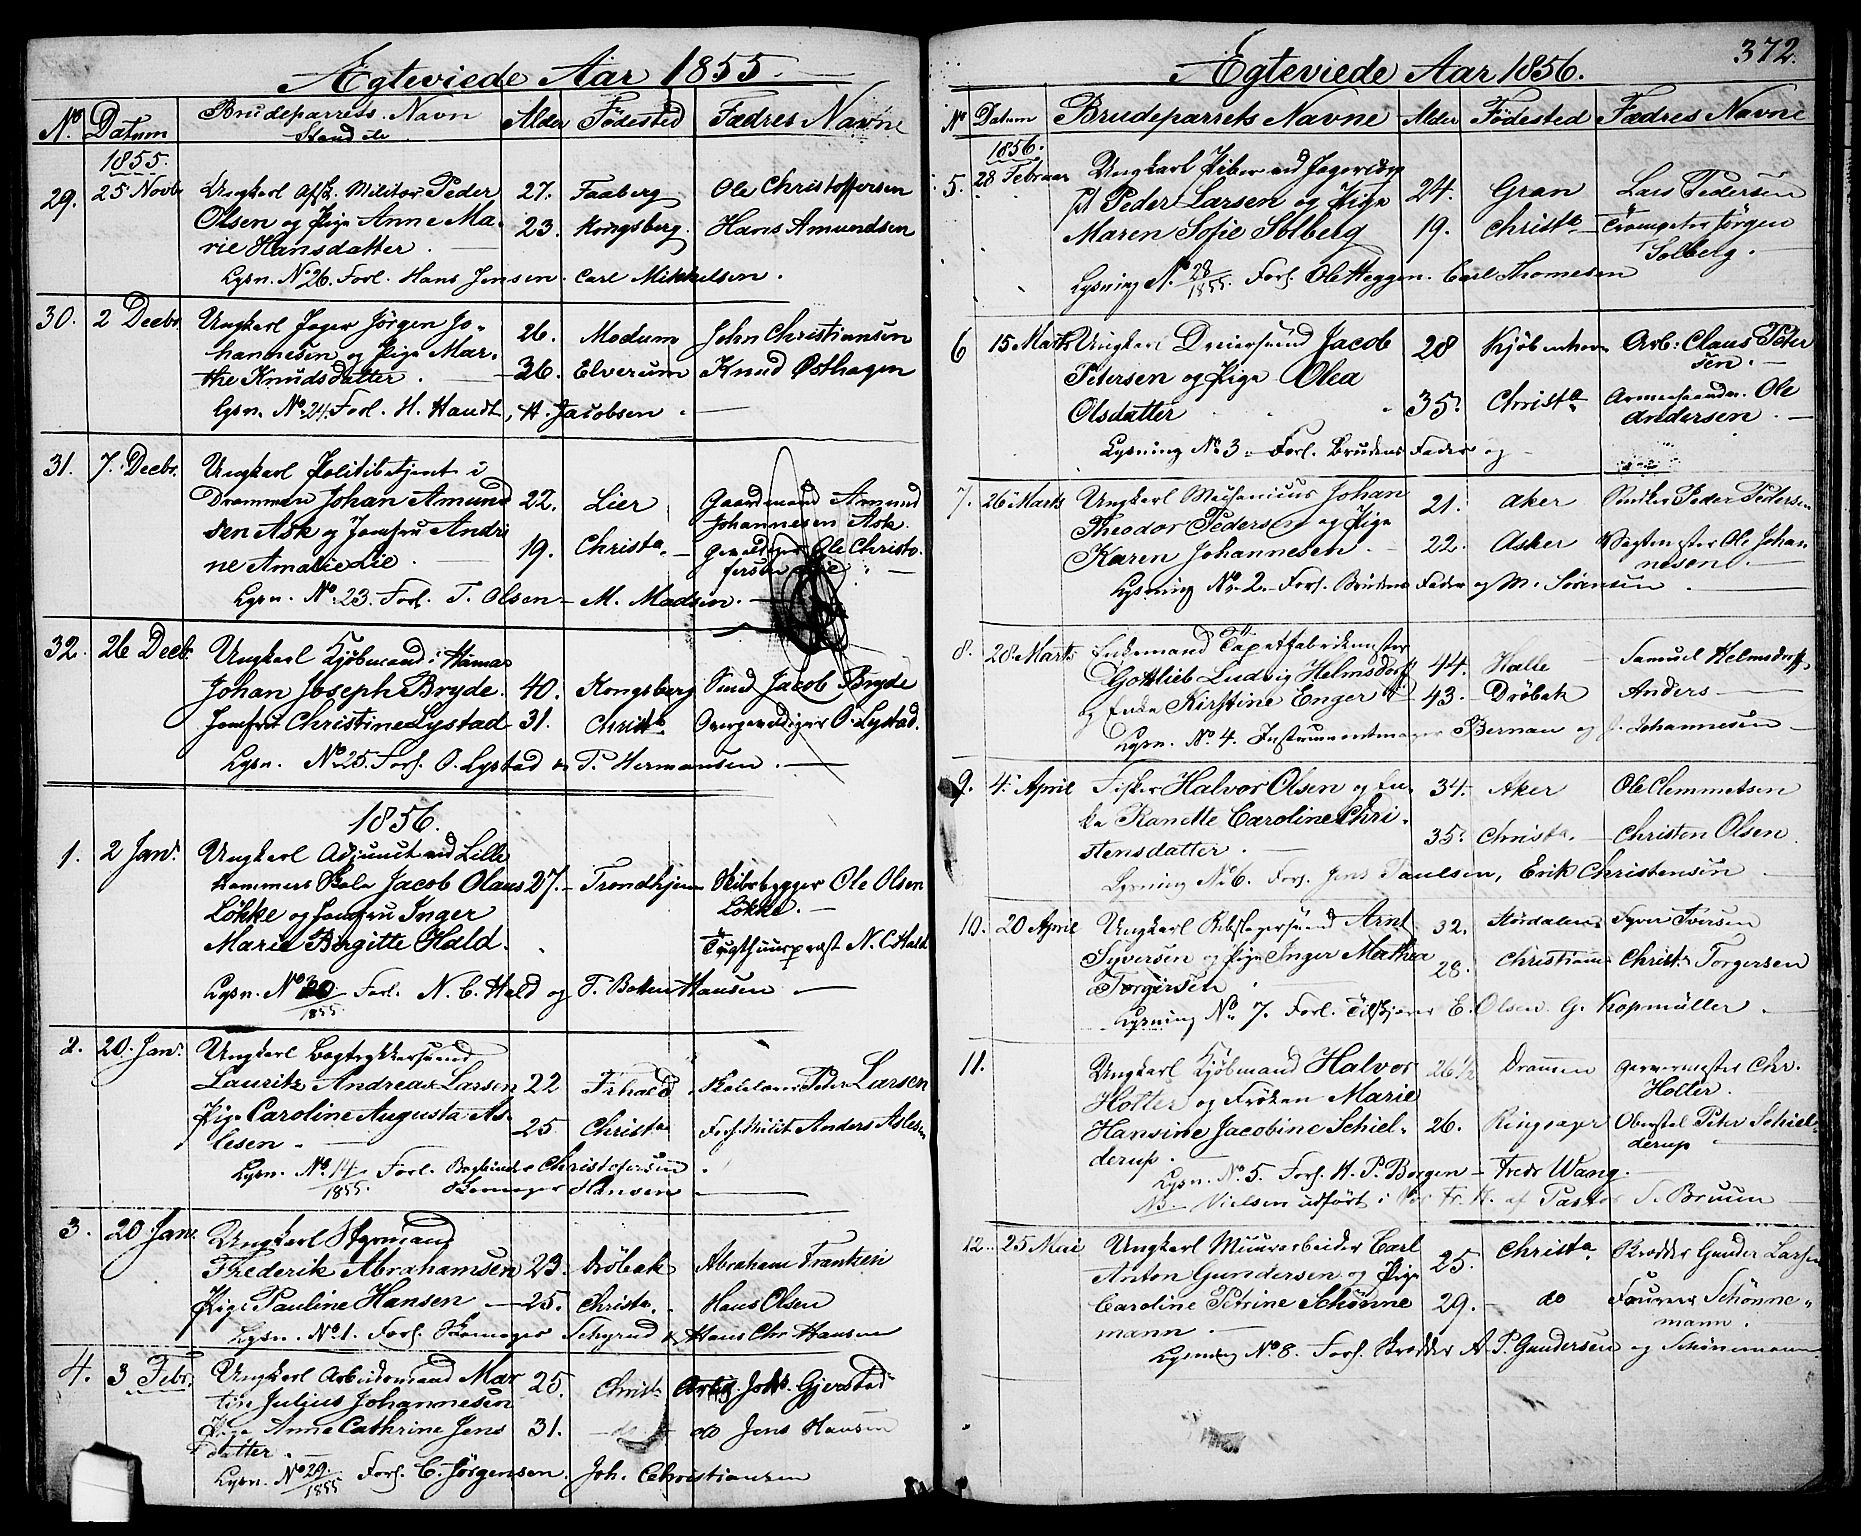 Ægteviede Aar 1855.
No. Datum Brudeparrets Navn Stand &c Alder Fødested Fædres Navne
1855.
29. 25 Novbr Ungkarl Afsk. Militær Peder 27. Faaberg Ole Christoffersen
Olsen og Pige Anne Ma- 23. Kongsberg. Hans Amundsen
rie Hansdatter.
Lysn. No 26. Forl. Hans Jensen. Carl Mikkelsen.
30. 2 Decbr. Ungkarl Jæger Jörgen Jo- 26. Modum John Christiansen
hannesen og Pige Mar- 36. Elverum Knud Østhagen
the Knudsdatter.
Lysn. No. 24. Forl. H. Haudt, H. Jacobsen.
31. 7. Decbr. Ungkarl Politibetjent i
Drammen Johan Amund 22. Lier Gaardmand Amund
sen Ask og Jomfru Andri Johannesen Ask.
ne Amalie Lie. 19. Christa. Gevaldiger Ole Christo-
fersen Lie
Lysn. No. 23. Forl. T. Olsen - M. Madsen.
32. 26 Decb. Ungkarl Kjøbmand i Hamar
Johan Joseph Bryde. 40. Kongsberg Smed Jacob Bryde
Jomfru Christine Lystad 31. Christa Overgevaldiger O. Lystad.
Lysn. No. 25. Forl. O. Lystad og P. Hermansen.
1856.
1. 2 Jan. Ungkarl Adjunct ved Lille
hammers Skole Jacob Olaus 27. Trondhjem Skibsbygger Ole Olsen
Løkke og Jomfru Inger Løkke.
Marie Birgitte Hald. Tugthuuspræst N. C. Hald
Lysn. No 30/1855. Forl. N. C. Hald og T. Hansen
2. 20. Jan. Ungkarl Bogtrykkersvend
Lauritz Andreas Larsen 22 Frhald Skolelærer Peder Larsen
Pige Caroline Augusta As- 25. Christa Forh. Milit Anders Aslesen
lesen.
Lysn. No. 14/1855. Forl. Bogbinder Christofersen
Skomager Hansen
3. 20 Jan. Ungkarl Styrmand
Frederik Abrahamsen 23. Dröbak Abraham Frantzen
Pige Pauline Hansen 25. Christa. Hans Olsen
Lysn. No. 1. Forl. Skomager Schyrud & Hans Chr. Hansen
4. 3 Febr. Ungkarl Arbeidsmand Mar 25. Christa Arbm. Johs. Gjerstad
tin Julius Johannesen
Pige Anne Cathrine Jens 31. do do Jens Hansen
datter.
Lysn. No 29/1855 Forl. C. Jørgensen. Joh. Christiansen
372.
Ægteviede Aar 1856.
No Datum Brudeparrets Navne Alder Fødested Fædres Navne
1856.
5. 28 Februar Ungkarl Piber ved Jægercorps
Peder Larsen og Pige 24. Gran Lars Pedersen
Maren Sofie Solberg 19. Christa Trompeter Jörgen
Solberg.
Lysning No. 28/1855. Forl. Ole Heggen. Carl Thomesen
6 15 Marts Ungkarl Dreiersvend Jacob 28 Kjöbenhavn Arb: Claus Peter
Petersen og Pige Olea sen.
Olsdatter 35. Christa Ole
Andersen.
Lysning No. 3. Forl. Brudens Fader og
7. 26 Marts Ungkarl Mechanicus Johan 21. Aker Peder Pedersen
Theodor Pedersen og Pige
Karen Johannesen. 22. Asker Vagtmester Ole Johan
nesen.
Lysning No. 2. Forl. Brudens Fader og M. Sørensen
8. 28 Marts Enkemand Tapetfabrikmester
Gottlieb Ludvig Helmsdorff 44. Halle Samuel Helmsdorff
og Enke Kirstine Enger 43. Dröbak Anders
Lysn. No. 4. Instrumentmager Bernau og J. Johannesen
9. 4. April Fisker Halvor Olsen og En- 34. Aker Ole Clemmetsen
ke Ranette Caroline Chri- 35. Christa. Christen Olsen
stensdatter.
Lysning No 6. Forl. Jens Paulsen, Erik Christensen
10. 20 April Ungkarl Rebslagersvend Arnt 32. Størdalen Syver Iversen
Syversen og Pige Inger Mathea 28. Christiania Christ. Torgersen
Torgersen
Lysning No. 7. Forl. E. Olsen G. Kopmüller
11. Ungkarl Kjøbmand Halvor 26 1/2 Drammen Garvermester Chr.
Holter og Frøken Marie Holter.
Hansine Jacobine Schiel- 26. Ringsager Oberstl. Peter Schiel-
derup. derup
Lysn. No. 5. Forl. H. P. Borgen - Fredr Wang.
NB - Vielsen udført i Vor Fr. K. af Pastor S. Bruun
12. 25 Mai Ungkarl Muurarbeider Carl 25. Christa. Brodder Gunder Larsen
Anton Gundersen og Pige
Caroline Petrine Schönne 29. do Schönne-
mann. mann.
Lysning No. 8. Forl. Brodder A. P. Gundersen og Schönemann